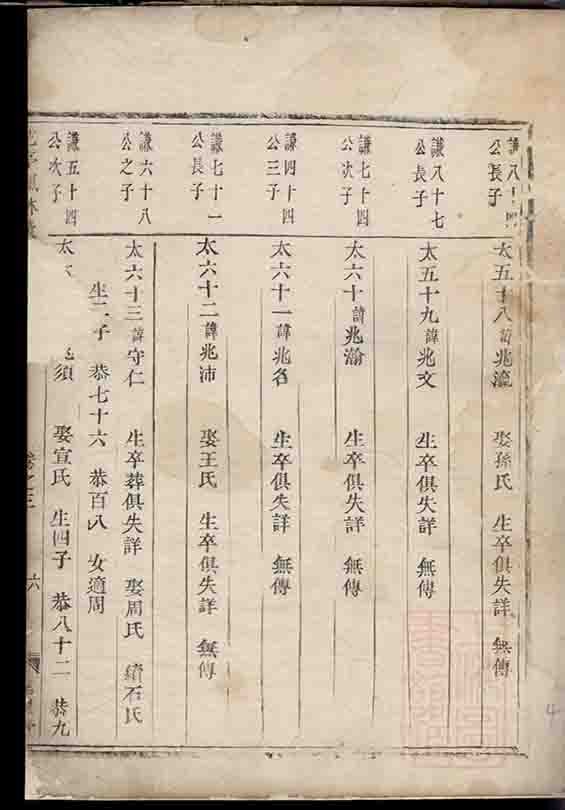 公長子
太五十八諱兆瀛 娶孫氏 生卒俱失詳 無傳
謙八十七
公長子
太五十九諱兆文 生卒俱失詳 無傳
謙七十四
公次子
太六十諱兆瀚 生卒俱失詳 無傳
謙四十四
公三子
太六十一諱兆名 生卒俱失詳 無傳
謙七十一
公長子
太六十二諱兆沛 娶王氏 生卒俱失詳 無傳
謙六十八
公之子
太六十三諱守仁 生卒葬俱失詳 娶周氏 續石氏
生二子 恭七十六 恭百八 女適周
謙五十四
公次子
太 須 娶宣氏 生四子 恭八十二 恭九
卷之三
六